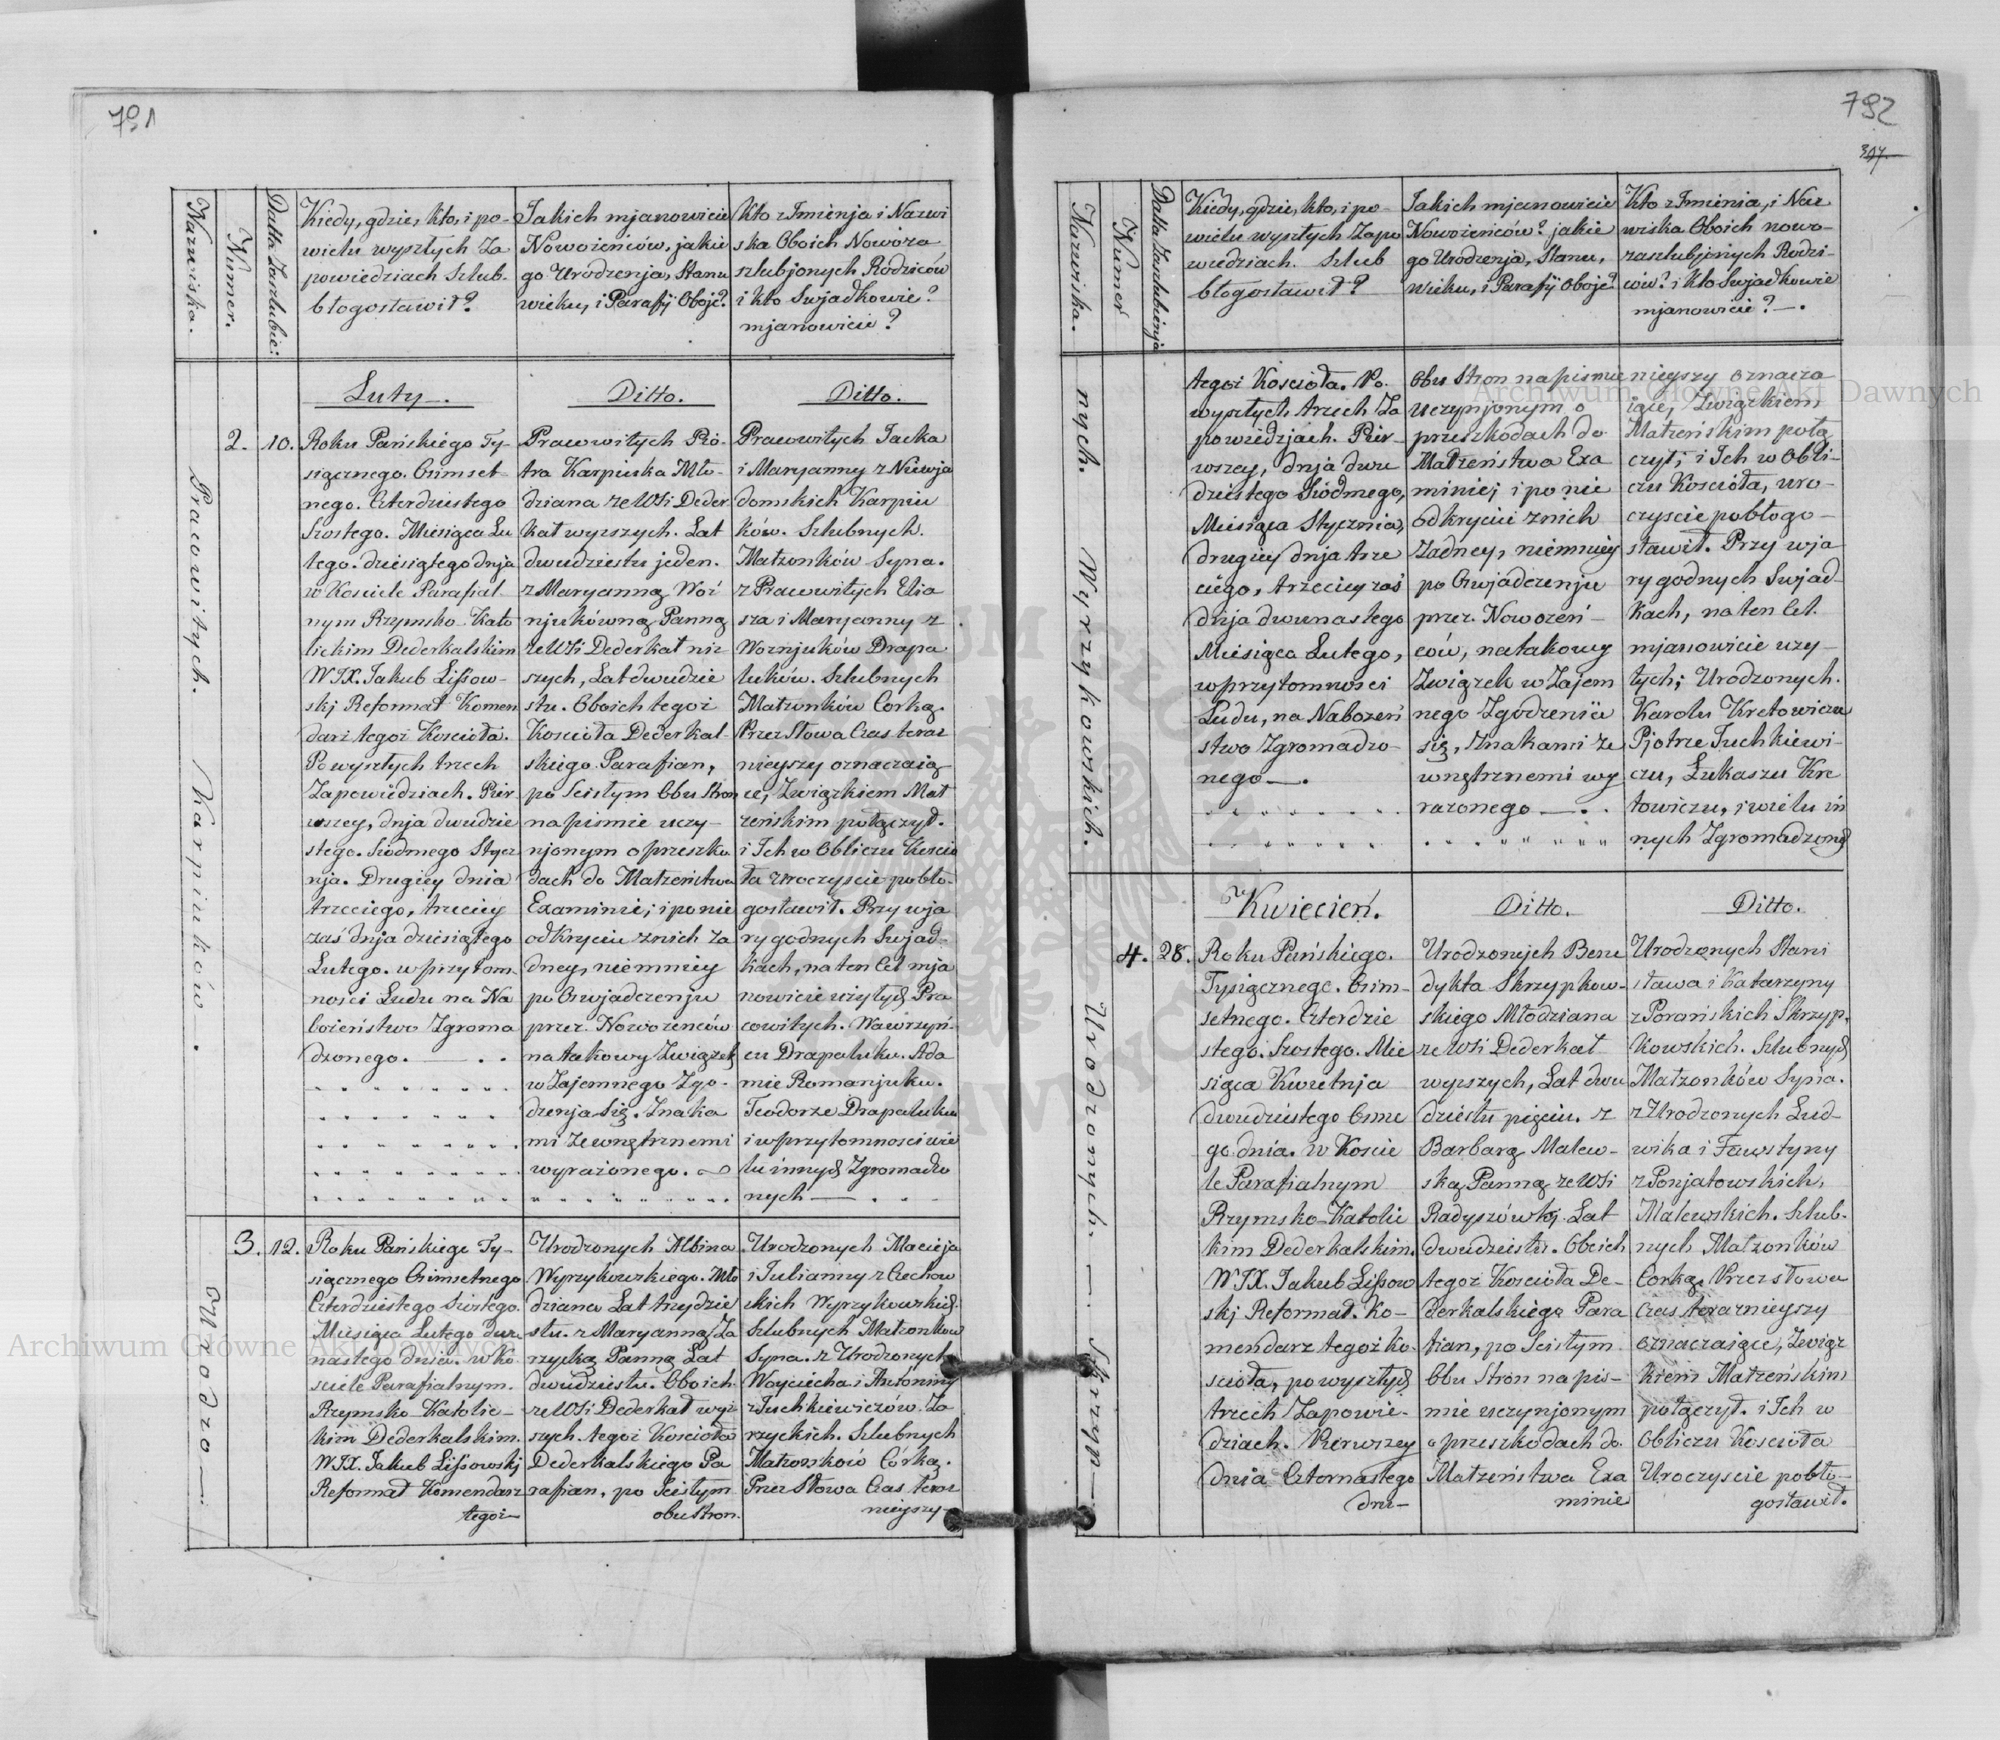 791
Nazwiska.
Numer.
Datta Zaslubie:
Kiedy, gdzie, kto, i po-
wielu wyszłych Za
powiedziach Szlub-
błogosławił?
Jakich mjanowicie
Nowożeńców, jakie
go Urodzenja, Stanu
wieku, i Parafij Oboje?
Kto z Imienja i Nazwi
ska Oboich Nowoza
szlubjonych Rodziców
i kto Swjadkowie?
mjanowicie?
Luty.
Ditto.
Ditto.
Pracowitych. Karpiuków.
2.
10.
Roku Pańskiego Ty-
siącznego. Ośmset
nego. Czterdziestego
Szostego. Miesiąca Lu
tego. dziesiątego dnja
w Kosciele Parafial
nym Rzymsko Kato
lickim Dederkalskim
WJX. Jakub Lissow-
skj Reformat Komen
darz tegoż Kosciola.
Po wyszłych trzech
Zapowiedziach. Pier
wszey, dnja dwudzie
stego. Siodmego Stycz
nja. Drugiey dnia
trzeciego, trzeciey
zaś dnja dziesiątego
Lutego. w przytom-
ności Ludu na Na
bożeństwo Zgroma
dzonego.
Pracowitych Pio-
tra Karpiuka Mło-
dziana ze WSi Deder
kał wyzszych. Lat
dwudziestu jeden.
z Maryanną Woź
njukówną Panną
ze WSi Dederkał niz
szych, Lat dwudzie
stu. Oboich tegoż
Kosciola Dederkal-
skiego Parafian,
po Scisłym Obu Stron
na pismie uczy-
njonym o przeszko
dach do Małzeństwa
Examinie; i po nie
odkryciu z nich ża
dney, niemniey
po Oswjadczenju
przez Nowozenców
na takowy Związek
w Zajemnego Zgo-
dzenja się. Znaka
mi zewnętrznemi
wyrażonego.
Pracowitych Jacka
i Maryanny z Niewja
domskich Karpiu
ków. Szlubnych.
Małzonków Syna.
z Pracowitych Elia
sza i Maryanny z
Woznjuków Drapa
luków. Szlubnych
Małzonków Corką.
Przez Słowa Czas teraz
nieyszy oznaczaią
ce, Związkiem Mał
zeńskim połączył.
i Ich w Obliczu Koscio
ła Uroczyscie pobło-
gosławił. Przy wja
rygodnych Swjad-
kach, na ten Cel mja
nowicie użytych Pra
cowitych. Wawrzyń-
cu Drapaluku. Ada
mie Romanjuku.
Teodorze Drapaluku
i w przytomnosci wie
lu innych Zgromadzo
nych
Urodzo-
3.
12.
Roku Pańskiego Ty-
siącznego Ośmsetnego
Czterdziestego Szostego.
Miesiąca Lutego dwu
nastego dnia. w Ko
sciele Parafialnym.
Rzymsko Katolic-
kim Dederkalskim.
WJX. Jakub Lissowskj
Reformat Komendarz
tegoż-
Urodzonych Albina
Wyrzykowskiego. Mło
dziana Lat trzydzie
stu. z Maryanną Za
rzycką Panną Lat
dwudziestu. Oboich.
ze WSi Dederkał wyz
szych. tegoż Kosciola
Dederkalskiego Pa
rafian, po Scisłym
obu Stron.
Urodzonych Macieja
i Julianny z Czechow
skich Wyrzykowskich.
Szlubnych Małzonków
Syna. z Urodzonych
Woyciecha i Antoniny
z Tuchkiewiczów. Za
rzyckich. Szlubnych
Małzonków Córką.
Przez Słowa Czas teraz
nieyszy-
792
Nazwiska.
Numer
Datta Zaszlubienja
Kiedy, gdzie, kto, i po-
wielu wyszłych Zapo
wiedziach. Szlub
błogosławił?
Jakich mjanowicie
Nowożeńców? jakie
go Urodzenja, Stanu,
Wieku, i Parafij Oboje?
Kto z Imienia, i Naz
wiska Oboich nowo-
zaszlubjonych Rodzi-
ców? i kto Swjadkowie
mjanowicie?
nych. Wyrzykowskich.
tegoż Kosciola. Po
wyszłych trzech Za
powiedzjach. Pier-
wszey, dnja dwu
dziestego Siódmego,
Miesiąca Stycznia,
drugiey dnja trze
ciego, trzeciey zaś
dnja dwunastego
Miesiąca Lutego,
w przytomnosci
Ludu, na Nabozeń
stwo Zgromadzo-
nego.
Obu Stron na pismie
Uczynjonym o
przeszkodach do
Małzeństwa Exa
minie; i po nie
odkryciu z nich
Zadney, niemniey
po Oswjadczenju
przez Nowozeń-
ców, na takowy
Związek w Zajem
nego Zgodzenia
się, Znakami ze
wnętrznemi wy
razonego
nieyszy oznacza
iące, Związkiem
Małzeńskim połą
czył; i Ich w Obli-
czu Kosciola, uro-
czyscie pobłogo-
sławił. Przy wja
rygodnych Swjad-
kach, na ten Cel.
mjanowicie uzy-
tych; Urodzonych.
Karolu Kretowiczu
Pjotrze Tuchkiewi-
czu, Łukaszu Kre
towiczu, i wielu in
nych Zgromadzonych
Kwiecień.
Ditto.
Ditto.
Urodzonych. Skrzyp-
4.
28.
Roku Pańskiego.
Tysiącznego. Ośm-
setnego. Czterdzie
stego. Szostego. Mie
siąca Kwietnja
dwudziestego Osme
go dnia. w Koscie
le Parafialnym
Rzymsko-Katolic
kim Dederkalskim.
WJX. Jakub Lissow
skj Reformat. Ko-
mendarz tegoż ko
sciola, po wyszłych
trzech Zapowie-
dziach. Pierwszey
dnia Czternastego
dru-
Urodzonych Bene
dykta Skrzypkow-
skiego Młodziana
ze WSi Dederkał
wyzszych, Lat dwu
dziestu pięciu. z
Barbarą Malew-
ską Panną ze WSi
Radyszówkj. Lat
dwudziestu. Oboich
tegoż Kosciola De-
derkalskiego Para
fian, po Scisłym
Obu Stron na pis-
mie uczynjonym
o przeszkodach do
Małzeństwa Exa
minie
Urodzonych Stani
sława i Katarzyny
z Porańskich Skrzyp-
kowskich. Szlubnych
Małzonków Syna.
z Urodzonych Lud-
wika i Fawstyny
z Ponjatowskich,
Malewskich. Szlub-
nych Małzonków
Corką. Przez słowa
Czas teraznieyszy
oznaczające, Związ
kiem Małzeńskim
połączył. i Ich w
Obliczu Kosciola
Uroczyscie pobło-
gosławił.
Archiwum Główne Akt Dawnych
Archiwum Główne Akt Dawnych